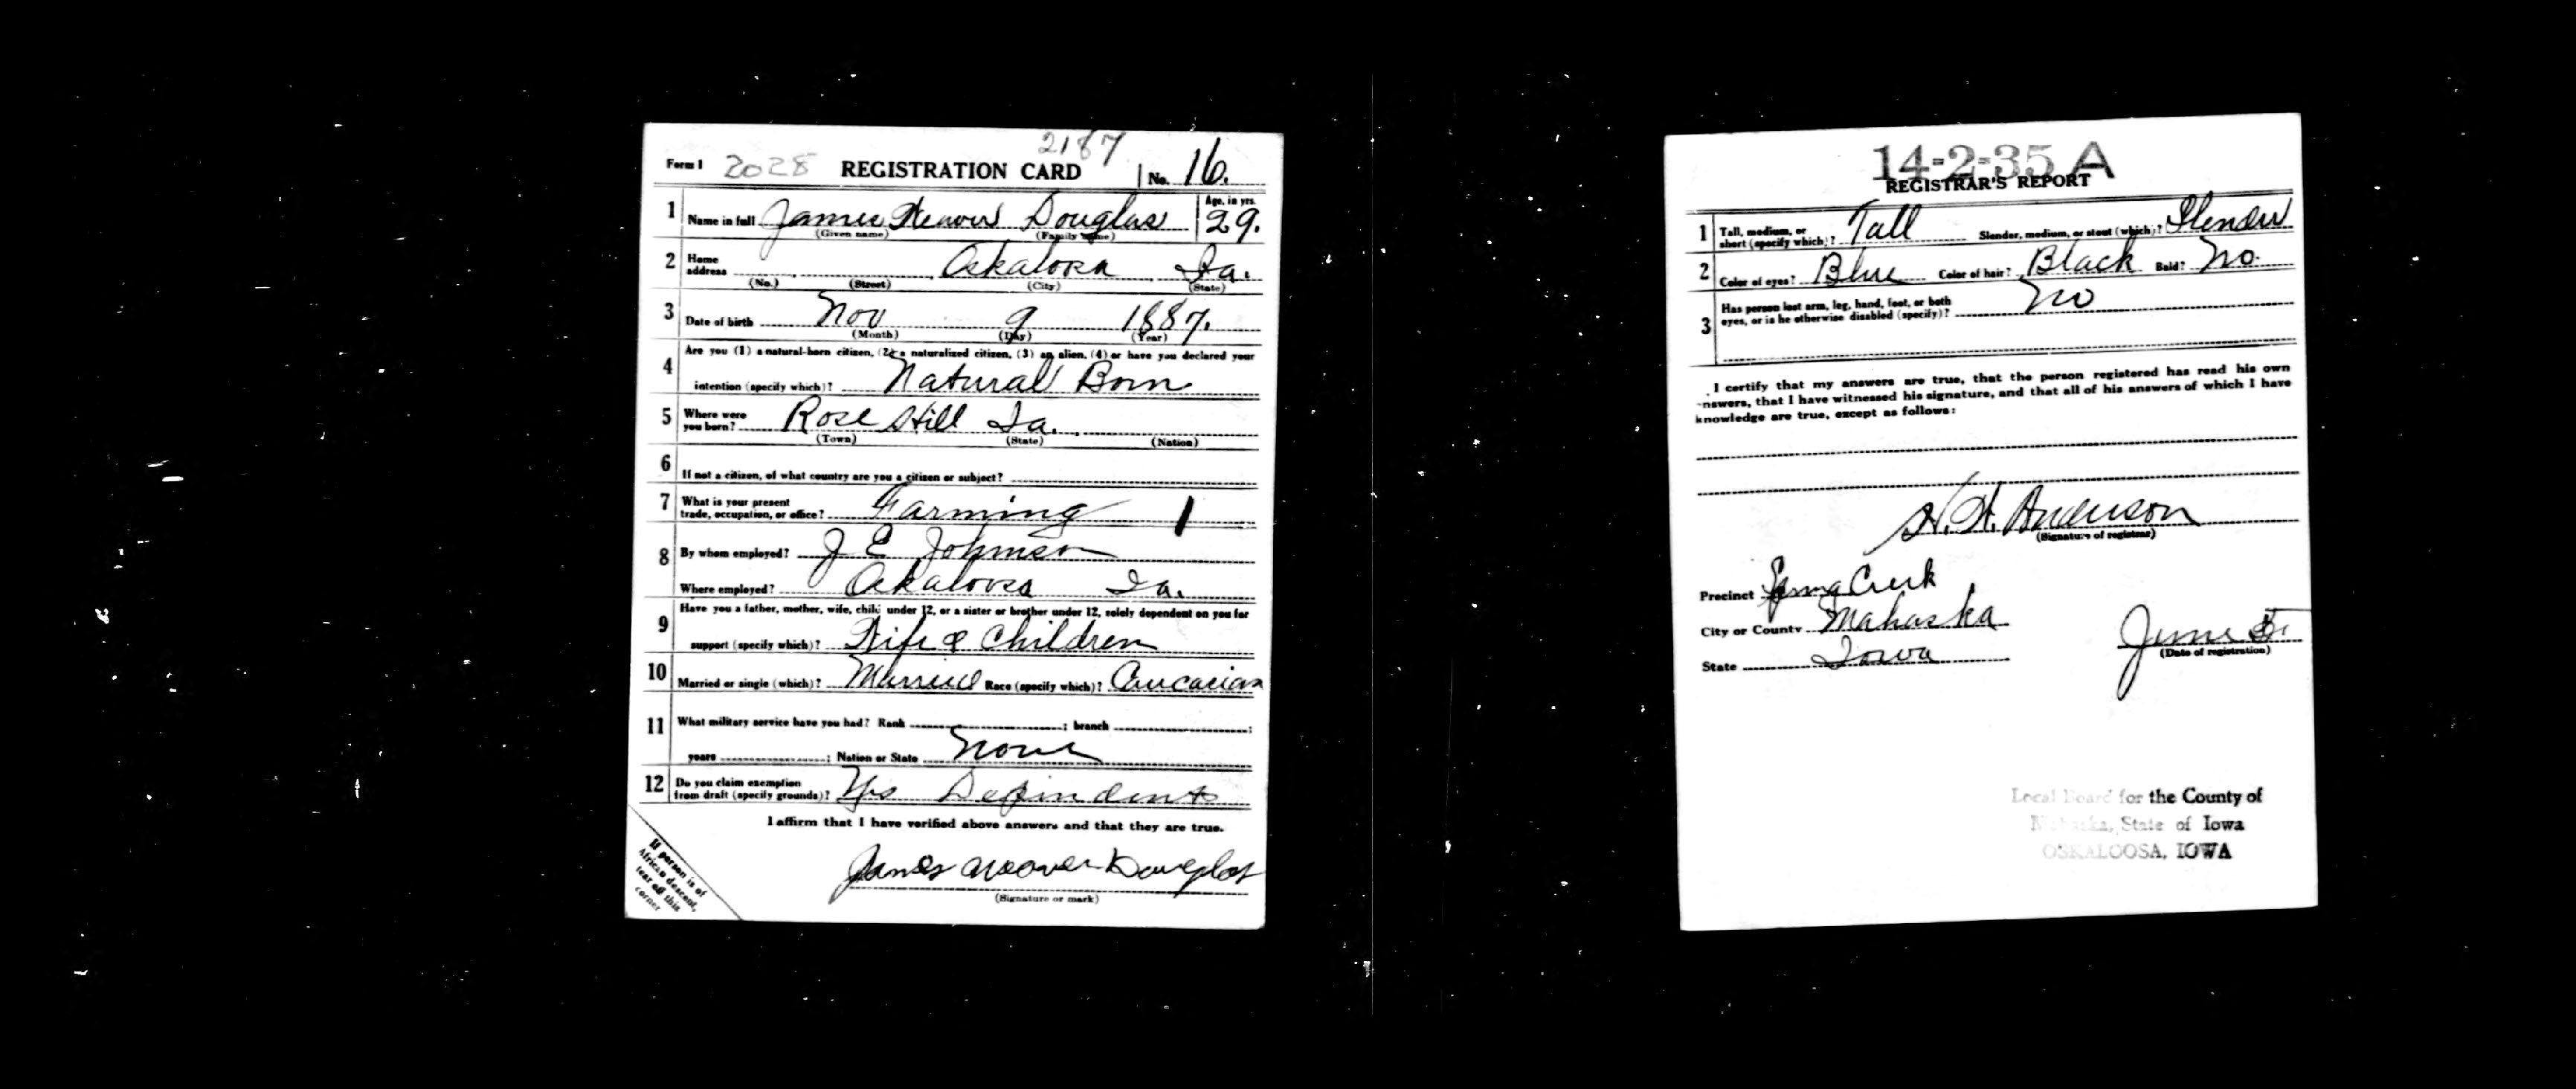 2187
Form 1 2028 REGISTRATION CARD No. 16.
1 Name in full James Weaver Douglas Age, in yrs. 29.
(Given name) (Family name)
2 Home address Oskaloosa Ia.
(No.) (Street) (City) (State)
3 Date of birth Nov 9 1887.
(Month) (Day) (Year)
4 Are you (1) a natural-born citizen, (2) a naturalized citizen, (3) an alien, (4) or have you declared your
intention (specify which)? Natural Born
5 Where were you born? Rose Hill Ia.
(Town) (State) (Nation)
6 If not a citizen, of what country are you a citizen or subject?
7 What is your present trade, occupation, or office? Farming 1
8 By whom employed? J E Johnson
Where employed? Oskaloosa Ia.
9 Have you a father, mother, wife, child under 12, or a sister or brother under 12, solely dependent on you for
support (specify which)? Wife & Children
10 Married or single (which)? Married Race (specify which)? Caucasian
11 What military service have you had? Rank ; branch ;
years ; Nation or State None
12 Do you claim exemption from draft (specify grounds)? Yes Dependents
I affirm that I have verified above answers and that they are true.
James Weaver Douglas
(Signature or mark)
If person is of
African descent,
tear off this
corner
14-2-35 A
REGISTRAR'S REPORT
1 Tall, medium, or short (specify which)? Tall Slender, medium, or stout (which)? Slender
2 Color of eyes? Blue Color of hair? Black Bald? No.
3 Has person lost arm, leg, hand, foot, or both
eyes, or is he otherwise disabled (specify)? No
I certify that my answers are true, that the person registered has read his own
answers, that I have witnessed his signature, and that all of his answers of which I have
knowledge are true, except as follows:
Anderson
(Signature of registrar)
Precinct Spring Creek
City or County Mahaska
State Iowa
June 5
(Date of registration)
Local Board for the County of
Mahaska, State of Iowa
OSKALOOSA, IOWA